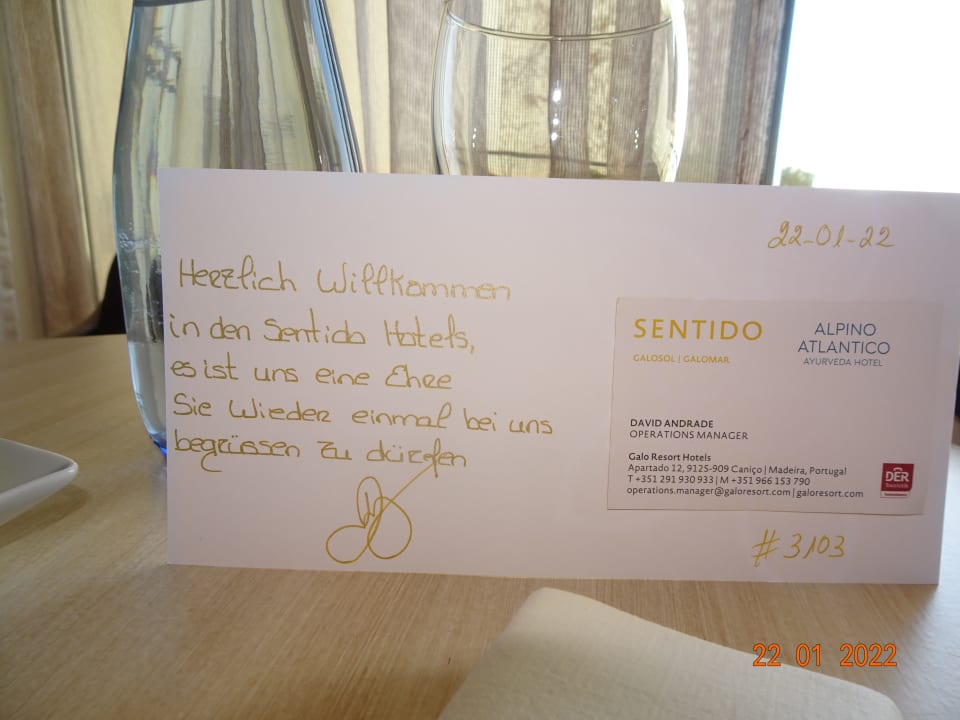 22-01-22
Herzlich Willkommen
in den Sentido Hotels,
es ist uns eine Ehre
Sie Wieder einmal bei uns
begrüssen zu dürfen
SENTIDO
GALOSOL | GALOMAR
ALPINO
ATLANTICO
AYURVEDA HOTEL
DAVID ANDRADE
OPERATIONS MANAGER
Galo Resort Hotels
Apartado 12, 9125-909 Caniço | Madeira, Portugal
T +351 291 930 933 | M +351 966 153 790
operations.manager@galoresort.com | galoresort.com
DER
#3103
22 01 2022